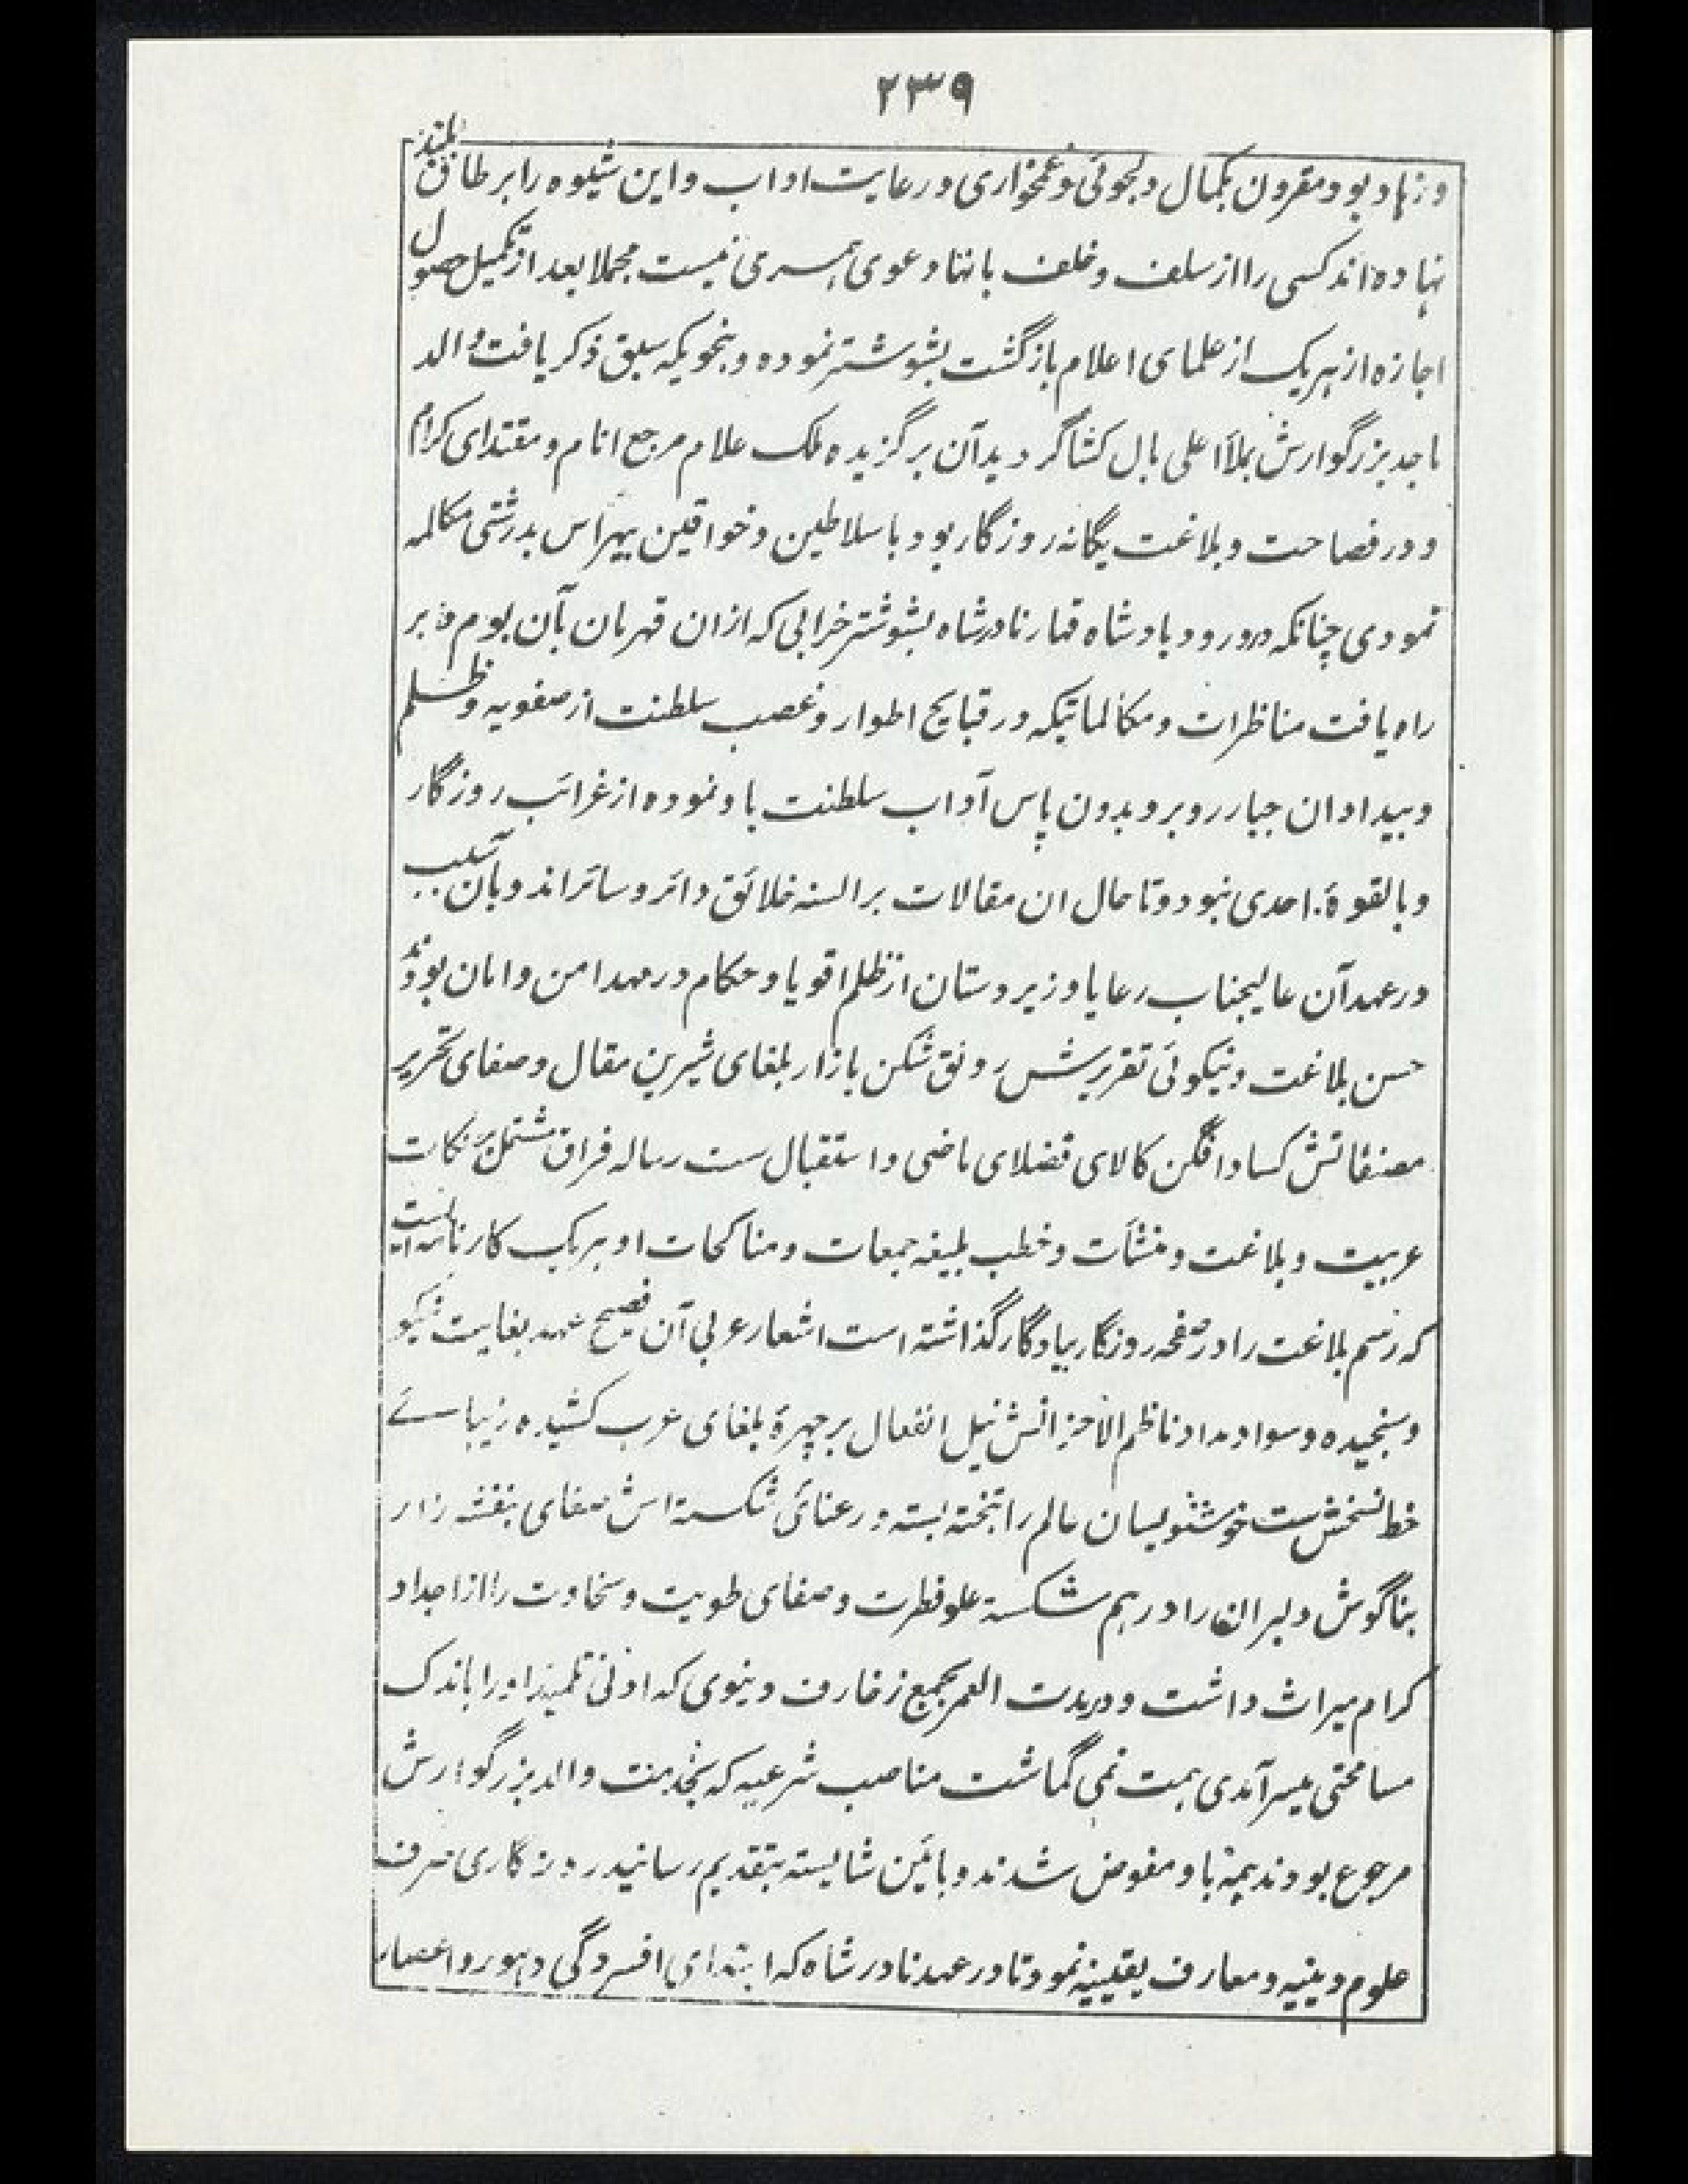 ۲۳۹
وزهاد بود مقرون بکمال دلجوئی و غمخواری و رعایت اداب و این شیوه را بر طاق بلند
نهاده اند کسی را از سلف و خلف بانها دعوی همسری نیست مجملا بعد از تکمیل حصول
اجازه از هریک از علمای اعلام بازگشت بشوشتر نموده و بنحویکه سبق ذکر یافت والد
ماجد بزرگوارش بملأ اعلی بال کشا گردید آن برگزیده ملک علام مرجع انام و مقتدای کرام
و در فصاحت و بلاغت یگانه روزگار بود با سلاطین و خواقین بیهراس بدرشتی مکالمه
نمودی چنانکه در ورود پادشاه قهار نادرشاه بشوشتر خرابی که ازان قهرمان بآن بوم و بر
راه یافت مناظرات و مکالماتیکه در قبایح اطوار و غصب سلطنت از صفویه و ظلم
و بیداد ان جبار روبرو بدون پاس آداب سلطنت باو نموده از غرائب روزگار
و بالقوهٔ احدی نبود و تا حال ان مقالات بر السنه خلائق دائر و سائر اند و بآن سبب
در عهد آن عالیجناب رعایا و زیردستان از ظلم اقویا و حکام در مهد امن و امان بودند
حسن بلاغت و نیکوئی تقریرش رونق شکن بازار بلغای شیرین مقال و صفای تحریر
مصنفاتش کساد افگن کالای فضلای ماضی و استقبال ست رساله فراق مشتمل بر نکات
عربیت و بلاغت و منشآت و خطب بلیغه جمعات و مناکحات او هریک کارنامه ایست
که رسم بلاغت را در صفحه روزگار بیادگار گذاشته است اشعار عربی آن فصیح عهد بغایت نیکو
و سنجیده و سواد مداد ناظم الاحزانش نیل انفعال بر چهرهٔ بلغای عرب کشیده زیبائے
خط نسخش ست خوشنویسان عالم را بتخته بسته و رعنائی شکسته اش صفای بنفشه زار
بناگوش دلبران را در هم شکسته علو فطرت و صفای طویت و سخاوت را از اجداد
کرام میراث داشت و در مدت العمر بجمیع زخارف دنیوی که ادنی تلمیذ او را باندک
مسامحتی میسر آمدی همت نمی گماشت مناصب شرعیه که بخدمت والد بزرگوارش
مرجوع بودند همه باو مفوض شدند و بآئین شایسته بتقدیم رسانید روزگاری صرف
علوم دینیه و معارف یقینیه نمود تا در عهد نادر شاه که ابتدای افسردگی دهور و اعصار